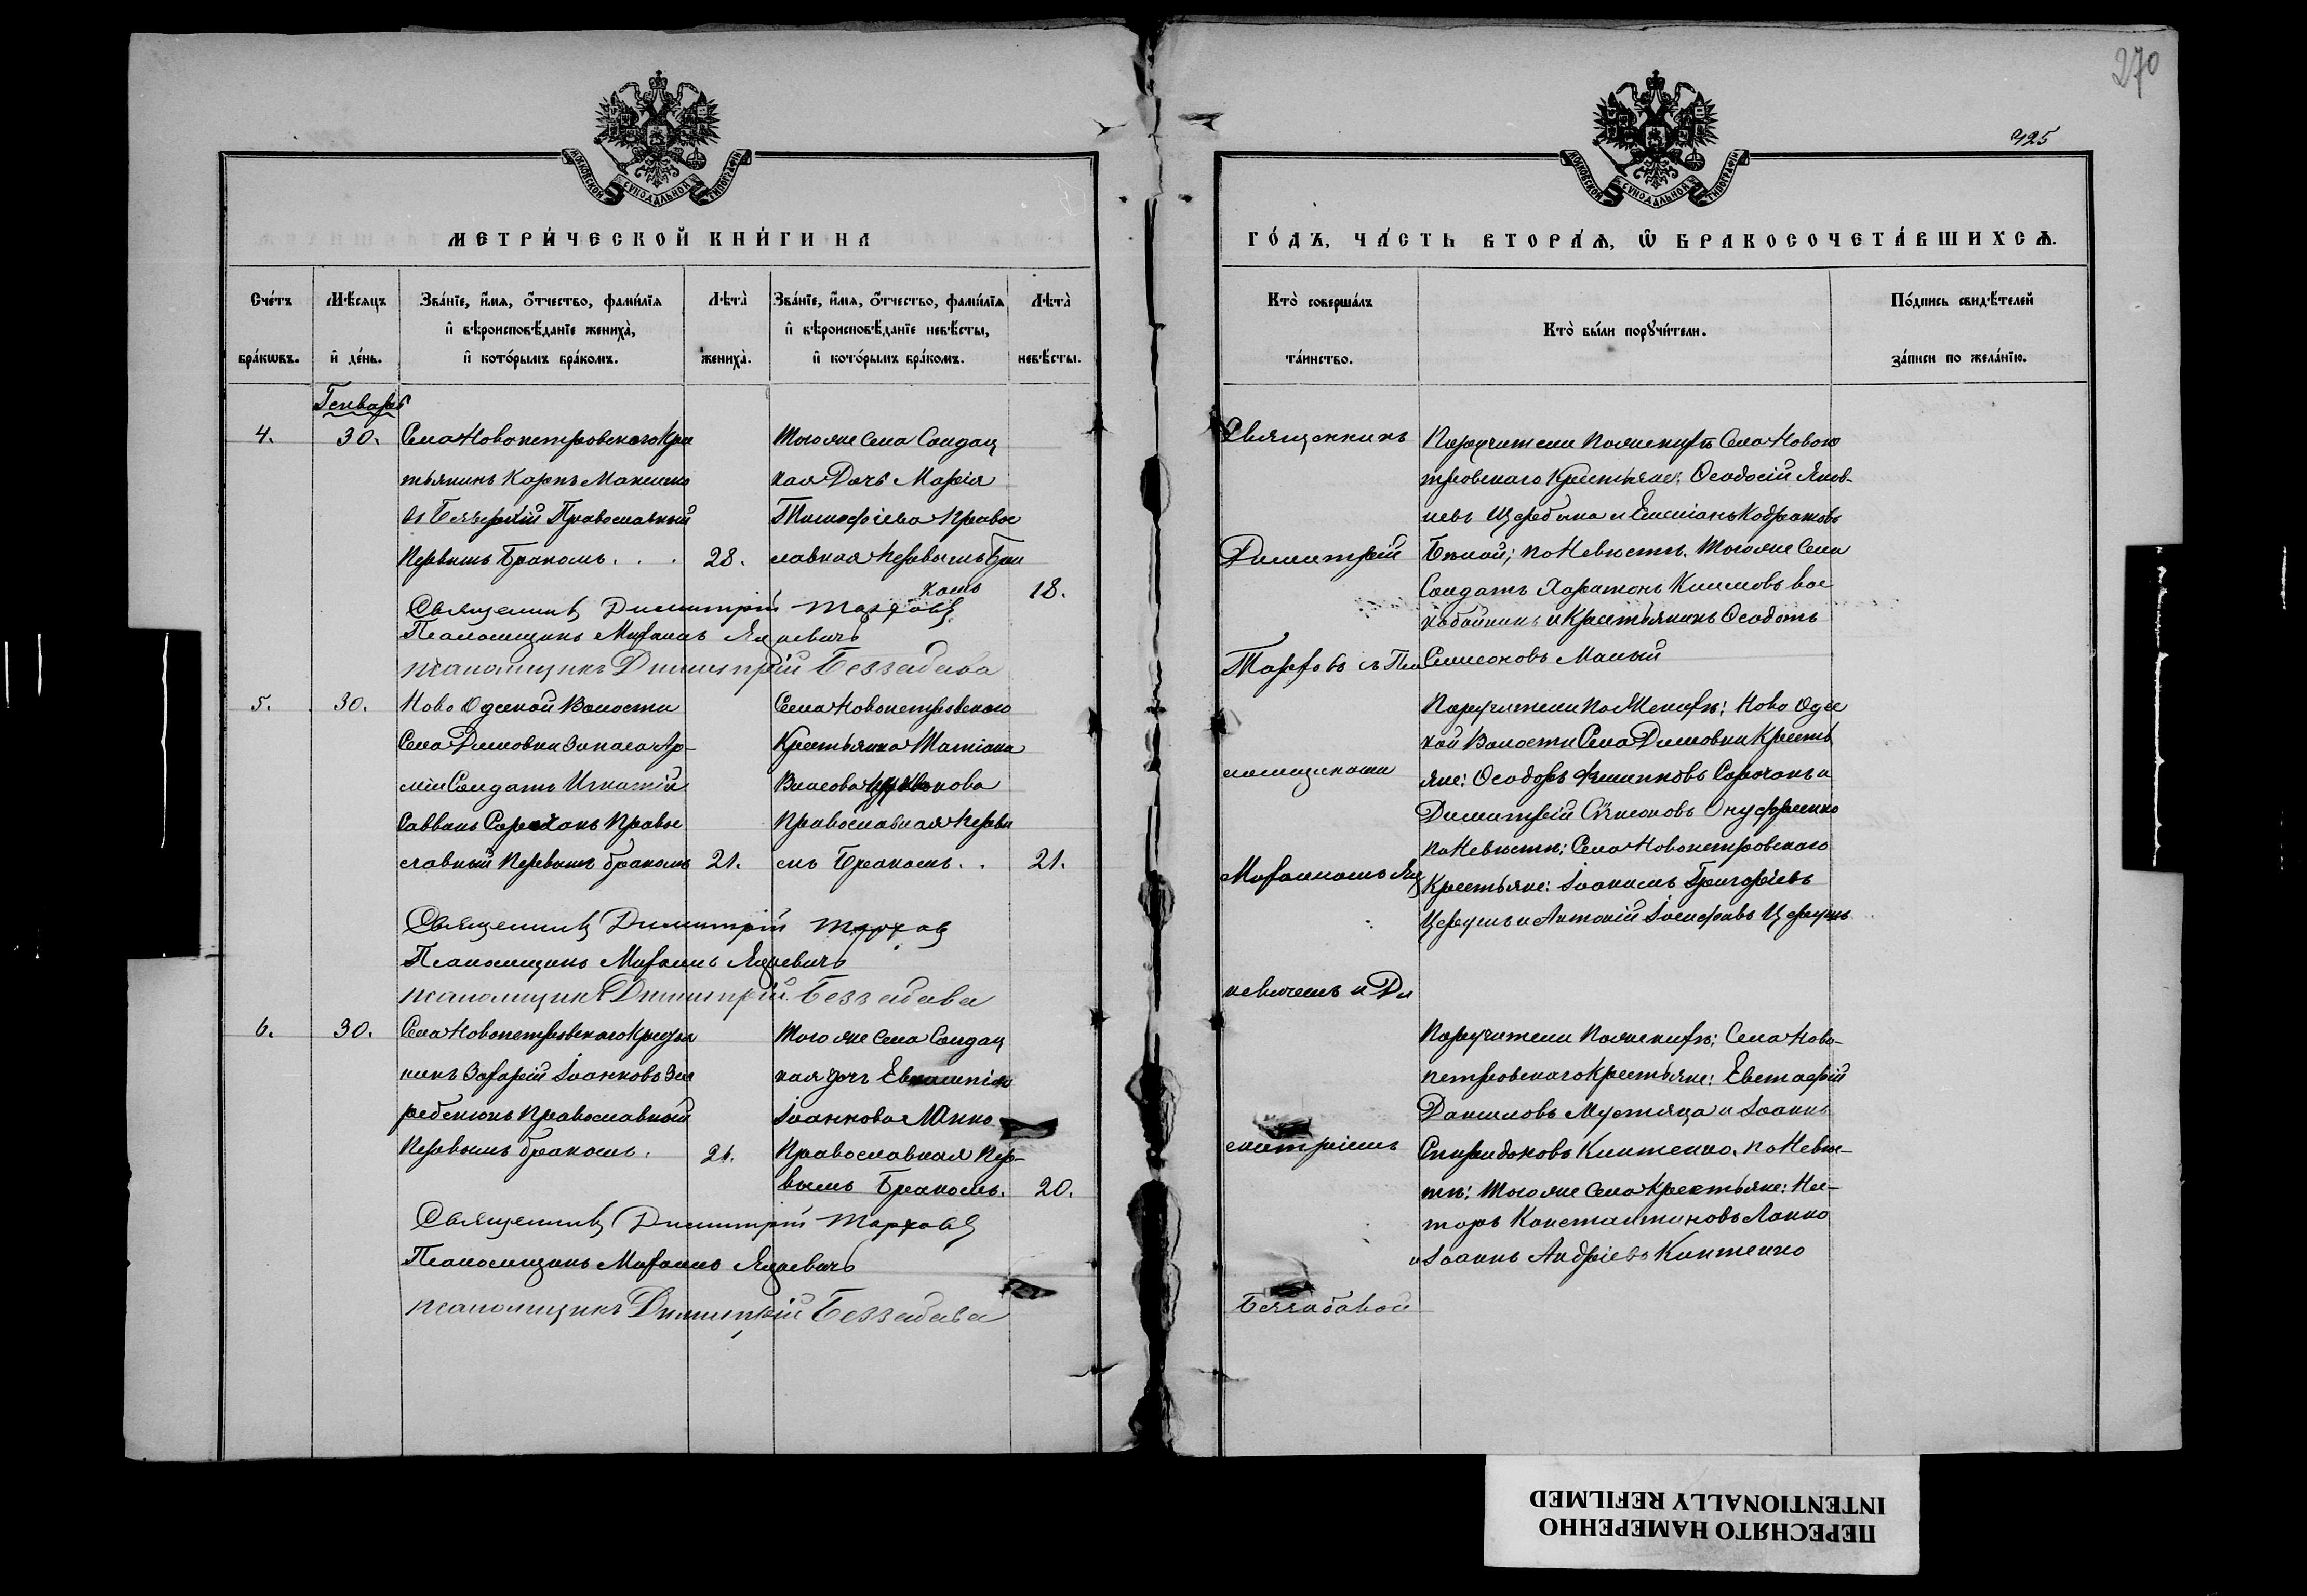 270
425
МОСКОВСКОЙ СѴНОДАЛЬНОЙ ТИПОГРАФІИ
МОСКОВСКОЙ СѴНОДАЛЬНОЙ ТИПОГРАФІИ
МЕТРИ́ЧЕСКОЙ КНИ́ГИ НА
Сче́тъ бра́кѡвъ.
Мѣ́сяцъ и҆ де́нь.
Зва́нїе, и҆́мѧ, ѻ҆́тчество, фами́лїѧ
и҆ вѣроисповѣ́данїе жениха̀,
и҆ кото́рымъ бра́комъ.
Лѣта̀ жениха̀.
Зва́нїе, и҆́мѧ, ѻ҆́тчество, фами́лїѧ
и҆ вѣроисповѣ́данїе невѣ́сты,
и҆ кото́рымъ бра́комъ.
Лѣта̀ невѣ́сты.
Генварь
4.
30.
Села Новопетровского Кре
тьянинъ Карпъ Максимо
въ Православный
Первымъ Бракомъ. . .
28.
Тогоже Села Солдац
кая Дочь Марія
Тимофіева Правос
лавная Первымъ Бра
комъ
18.
Священникъ Димитрій Тарховъ
Псаломщикъ Михаилъ Яцкевичъ
псаломщикъ Димитрій Беззабава
5.
30.
Ново Одеской Волости
Села Димовки Запаса Ар-
міи Солдатъ Игнатій
Саввинъ Сорочанъ Правос
славный Первымъ бракомъ
21.
Села Новопетровского
Крестьянка Татіана
Власова
Православная Первы
мъ Бракомъ. .
21.
Священникъ Димитрій Тарховъ
Псаломщикъ Михаилъ Яцкевичъ
псаломщикъ Димитрій Беззабава
6.
30.
Села Новопетровского Крестья
нинъ Захарій Іоанновъ
Православный
Первымъ бракомъ.
21.
Тогоже Села Солдац
кая дочь
Іоаннова
Православная Пер-
вымъ Бракомъ.
20.
Священникъ Димитрій Тарховъ
Псаломщикъ Михаилъ Яцкевичъ
псаломщикъ Димитрій Беззабава
ГО́ДЪ, ЧА́СТЬ ВТОРА́Ѧ, Ѽ БРАКОСОЧЕТА́ВШИХСѦ.
Кто̀ соверша́лъ та́инство.
Кто̀ бы́ли порꙋчи́тели.
По́дпись свидѣ́телей за́писи по жела́нїю.
Священникъ
Димитрій
Тарховъ съ Пса
ломщиками
Михаиломъ Яц
кевичемъ и Ди
митріемъ
Беззабавой
Поручители По женихѣ Села Новопе
тровского Крестьяне: Ѳеодосій Яков-
левъ Щербина и Кодратовъ
Бѣлой; по Невѣстѣ. Тогоже Села
Солдатъ Харитонъ Климовъ
и Крестьянинъ Ѳеодотъ
Симоновъ Малый
Поручители По Женихѣ: Ново Одес
кой Волости Села Димовки Кресть
яне: Ѳеодоръ Филиповъ Сорочанъ и
Димитрій Симоновъ Онуфріенко
по Невѣстѣ: Села Новопетровского
Крестьяне: Іоакимъ Григоріевъ
и Антоній Іосифовъ
Поручители По женихѣ: Села Ново-
петровского Крестьяне: Евстафій
Даниловъ Мустяца и Іоаннъ
Спиридоновъ Киктенко. по Невѣс-
тѣ: Тогоже Села Крестьяне: Нес-
торъ Константиновъ
и Іоаннъ Андріевъ Киктенко
ПЕРЕСНЯТО НАМЕРЕННО
INTENTIONALLY REFILMED